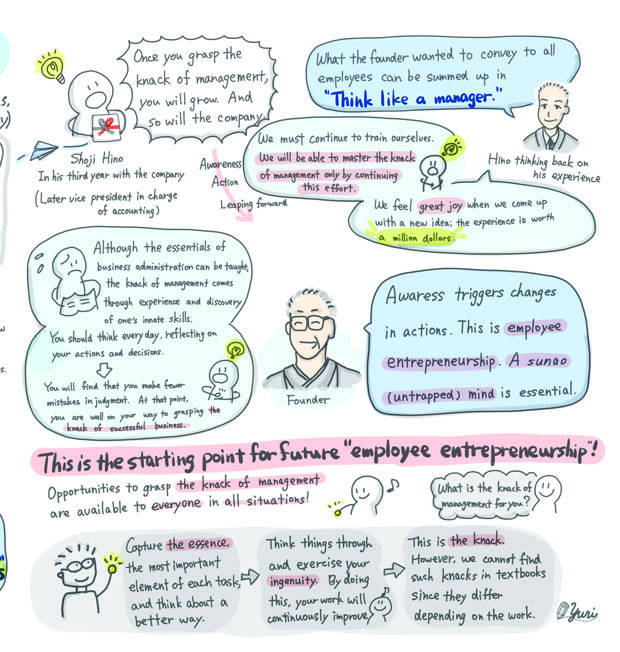 Once you grasp the
knack of management,
you will grow. And
so will the company.
Shoji Hino
In his third year with the company
(Later vice president in charge
of accounting)
Awareness
Action
Leaping forward
What the founder wanted to convey to all
employees can be summed up in
"Think like a manager."
Hino thinking back on
his experience
We must continue to train ourselves.
We will be able to master the knack
of management only by continuing
this effort.
We feel great joy when we come up
with a new idea; the experience is worth
a million dollars.
Although the essentials of
business administration can be taught,
the knack of management comes
through experience and discovery
of one's innate skills.
You should think every day, reflecting on
your actions and decisions.
You will find that you make fewer
mistakes in judgment. At that point,
you are well on your way to grasping the
knack of successful business.
Founder
Awaress triggers changes
in actions. This is employee
entrepreneurship. A sunao
(untrapped) mind is essential.
This is the starting point for future "employee entrepreneurship"!
Opportunities to grasp the knack of management
are available to everyone in all situations!
What is the knack of
management for you?
Capture the essence,
the most important
element of each task,
and think about a
better way.
Think things through
and exercise your
ingenuity. By doing
this, your work will
continuously improve.
This is the knack.
However, we cannot find
such knacks in textbooks
since they differ
depending on the work.
Yuri